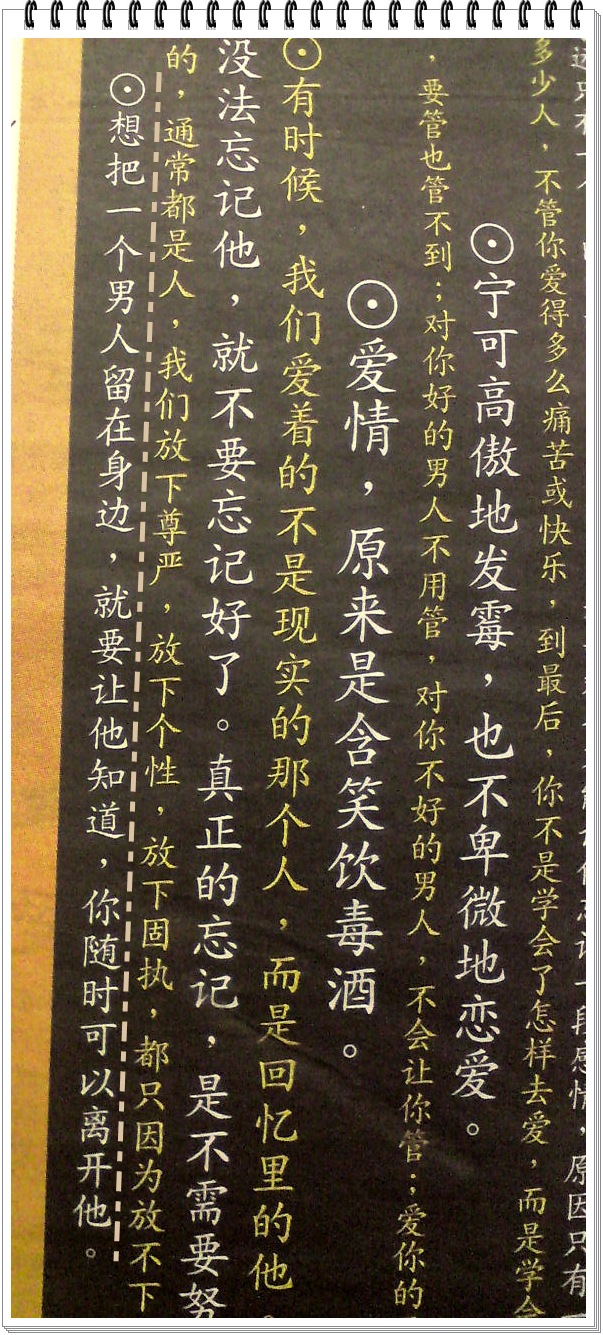 一段感情，原因只有
多少人，不管你爱得多么痛苦或快乐，到最后，你不是学会了怎样去爱，而是学会
⊙宁可高傲地发霉，也不卑微地恋爱。
，要管也管不到；对你好的男人不用管，对你不好的男人，不会让你管；爱你的
⊙爱情，原来是含笑饮毒酒。
⊙有时候，我们爱着的不是现实的那个人，而是回忆里的他。
没法忘记他，就不要忘记好了。真正的忘记，是不需要努
的，通常都是人，我们放下尊严，放下个性，放下固执，都只因为放不下
⊙想把一个男人留在身边，就要让他知道，你随时可以离开他。